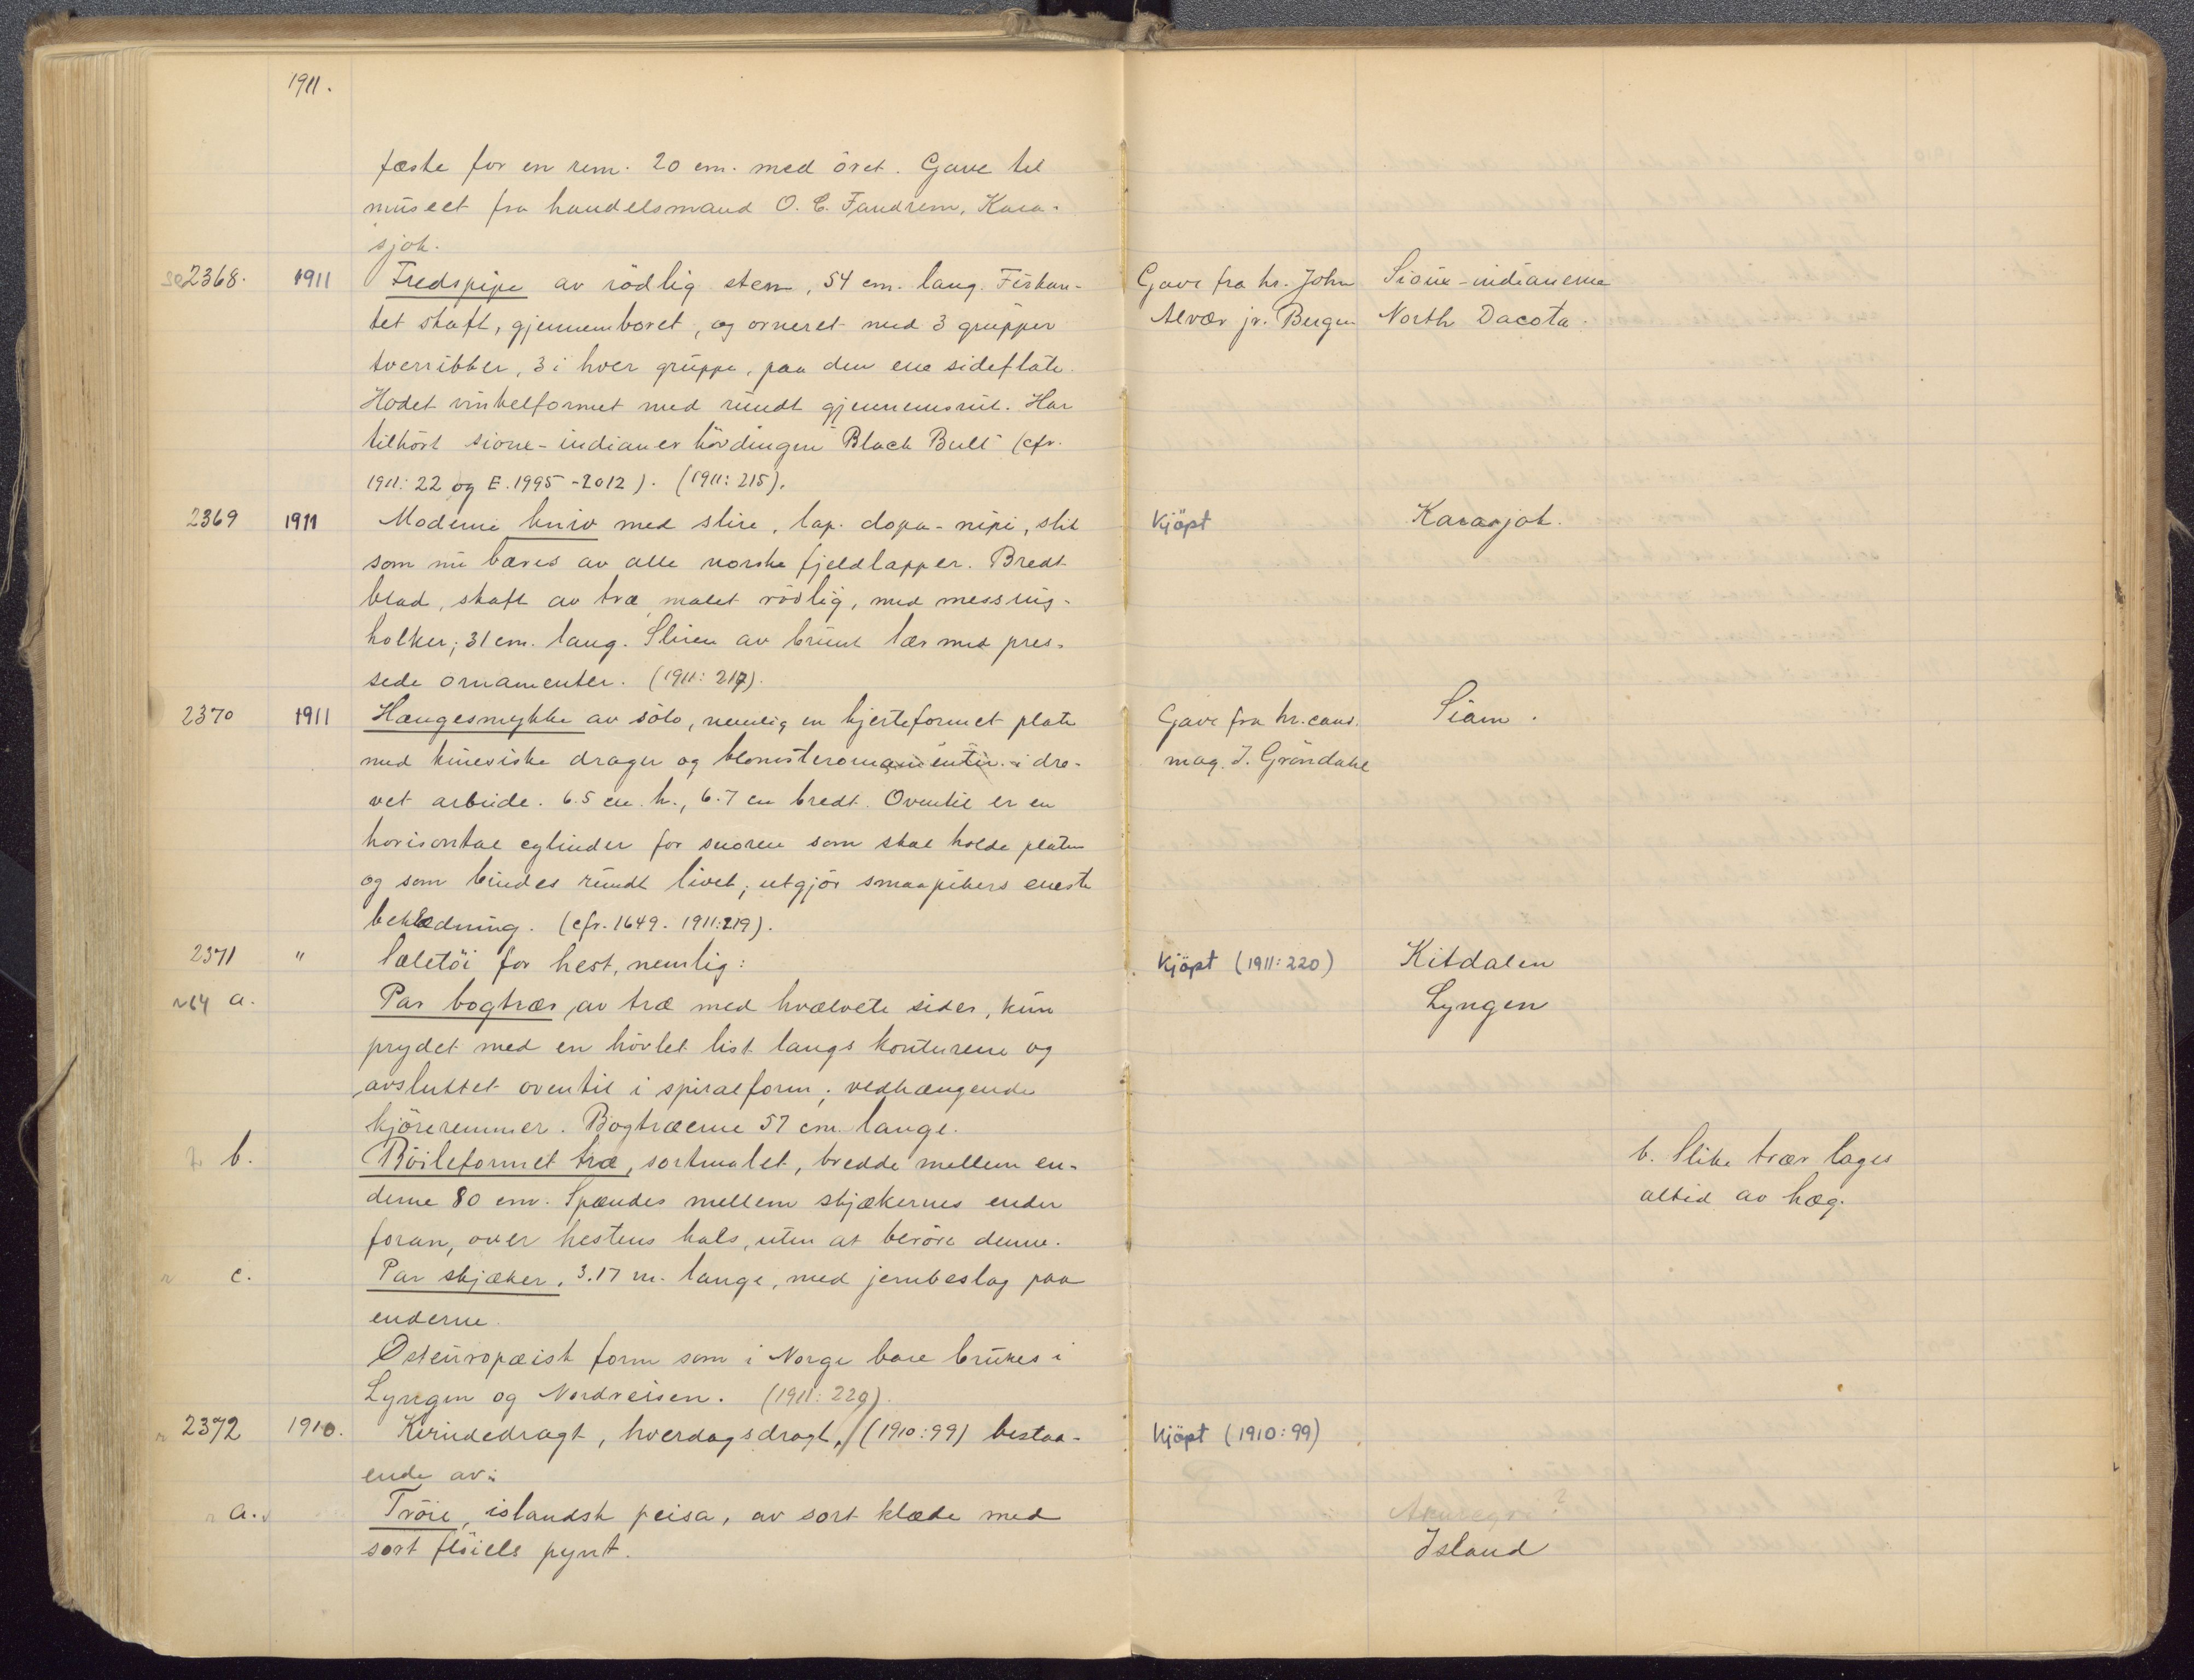 1911.
fæste for en rem. 20 cm. med öret. Gave til
museet fra handelsmand O. C. Fandrem, Kara-
sjok.
2368. 1911 Fredspipe av rödlig sten, 54 cm. lang. Firkan-
tet skaft, gjennemboret, og orneret med 3 grupper
tverribber, 3 i hver gruppe, paa den ene sideflate.
Hodet vinkelformet med rundt gjennemsnit. Har
tilhört sioux-indianer hövdingen "Black Bull" (cfr.
1911: 22 og E. 1995-2012). (1911: 215).
Gave fra hr. John
Alvær jr. Bergen
Sioux-indianerne
North Dacota.
2369 1911 Moderne kniv med slire, lap. dopa-nipi, slik
som nu bæres av alle norske fjeldlapper. Bredt
blad, skaft av træ malet rödlig, med messing-
holker; 31 cm. lang. Sliren av brunt lær med pres-
sede ornamenter. (1911: 217).
Kjöpt
Karasjok.
2370 1911 Hængesmykke av sölv, nemlig en hjerteformet plate
med kinesiske drager og blomsterornamenter i dre-
vet arbeide. 6.5 cm. h., 6.7 cm bredt. Oventil er en
horisontal cylinder for snoren som skal holde platen
og som bindes rundt livet; utgjör smaapikers eneste
beklædning. (cfr. 1649. 1911:219).
Gave fra hr. cand.
mag. I. Gröndahl
Siam.
2371 " Sæletöi for hest, nemlig:
a. Par bogtrær av træ med hvælvete sider, kun
prydet med en hövlet list langs konturene og
avsluttet oventil i spiralform; vedhængende
kjöreremmer. Bogtræerne 57 cm. lange.
Kjöpt (1911:220)
Kitdalen
Lyngen
b. Böileformet træ, sortmalet, bredde mellem en-
derne 80 cm. Spændes mellem skjækernes ender
foran, over hestens hals, uten at beröre denne.
b. Slike trær lages
altid av hæg.
c. Par skjæker, 3.17 m. lange, med jernbeslag paa
enderne.
Østeuropæisk form som i Norge bare brukes i
Lyngen og Nordreisen. (1911: 220).
2372 1910. Kvindedragt, hverdagsdragt, (1910:99) bestaa-
ende av:
Kjöpt (1910:99)
a. Tröie, islandsk peisa, av sort klæde med
sort flöiels pynt.
Akureyri?
Island